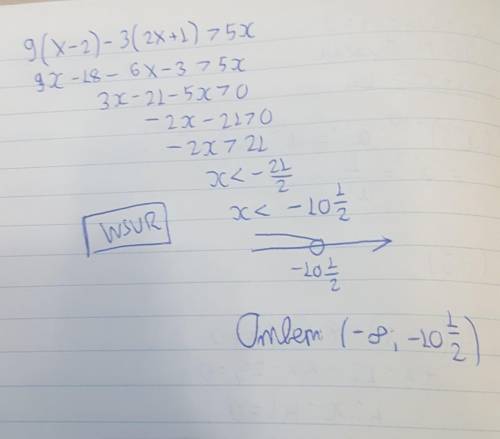 9(x-2)-3(2x+1)>5x
9x-18-6x-3>5x
3x-21-5x>0
-2x-21>0
-2x>21
x<-21/2
x< -10 1/2
WSUR
-10 1/2
Ответ (-∞; -10 1/2)